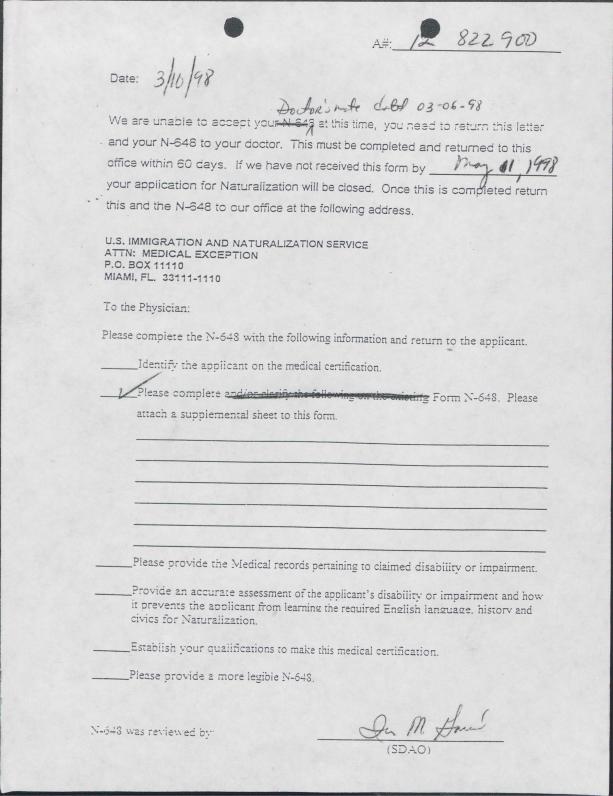 A#: 12 822 900
Date: 3/10/98
Doctor's note dated 03-06-98
We are unable to accept your N-648 at this time, you need to return this letter
and your N-648 to your doctor. This must be completed and returned to this
office within 60 days. If we have not received this form by May 11, 1998
your application for Naturalization will be closed. Once this is completed return
this and the N-648 to our office at the following address.
U.S. IMMIGRATION AND NATURALIZATION SERVICE
ATTN: MEDICAL EXCEPTION
P.O. BOX 11110
MIAMI, FL. 33111-1110
To the Physician:
Please complete the N-648 with the following information and return to the applicant.
Identify the applicant on the medical certification.
Please complete and/or clarify the following on the existing Form N-648. Please
attach a supplemental sheet to this form.
Please provide the Medical records pertaining to claimed disability or impairment.
Provide an accurate assessment of the applicant's disability or impairment and how
it prevents the applicant from learning the required English language, history and
civics for Naturalization.
Establish your qualifications to make this medical certification.
Please provide a more legible N-648.
N-648 was reviewed by:
(SDAO)